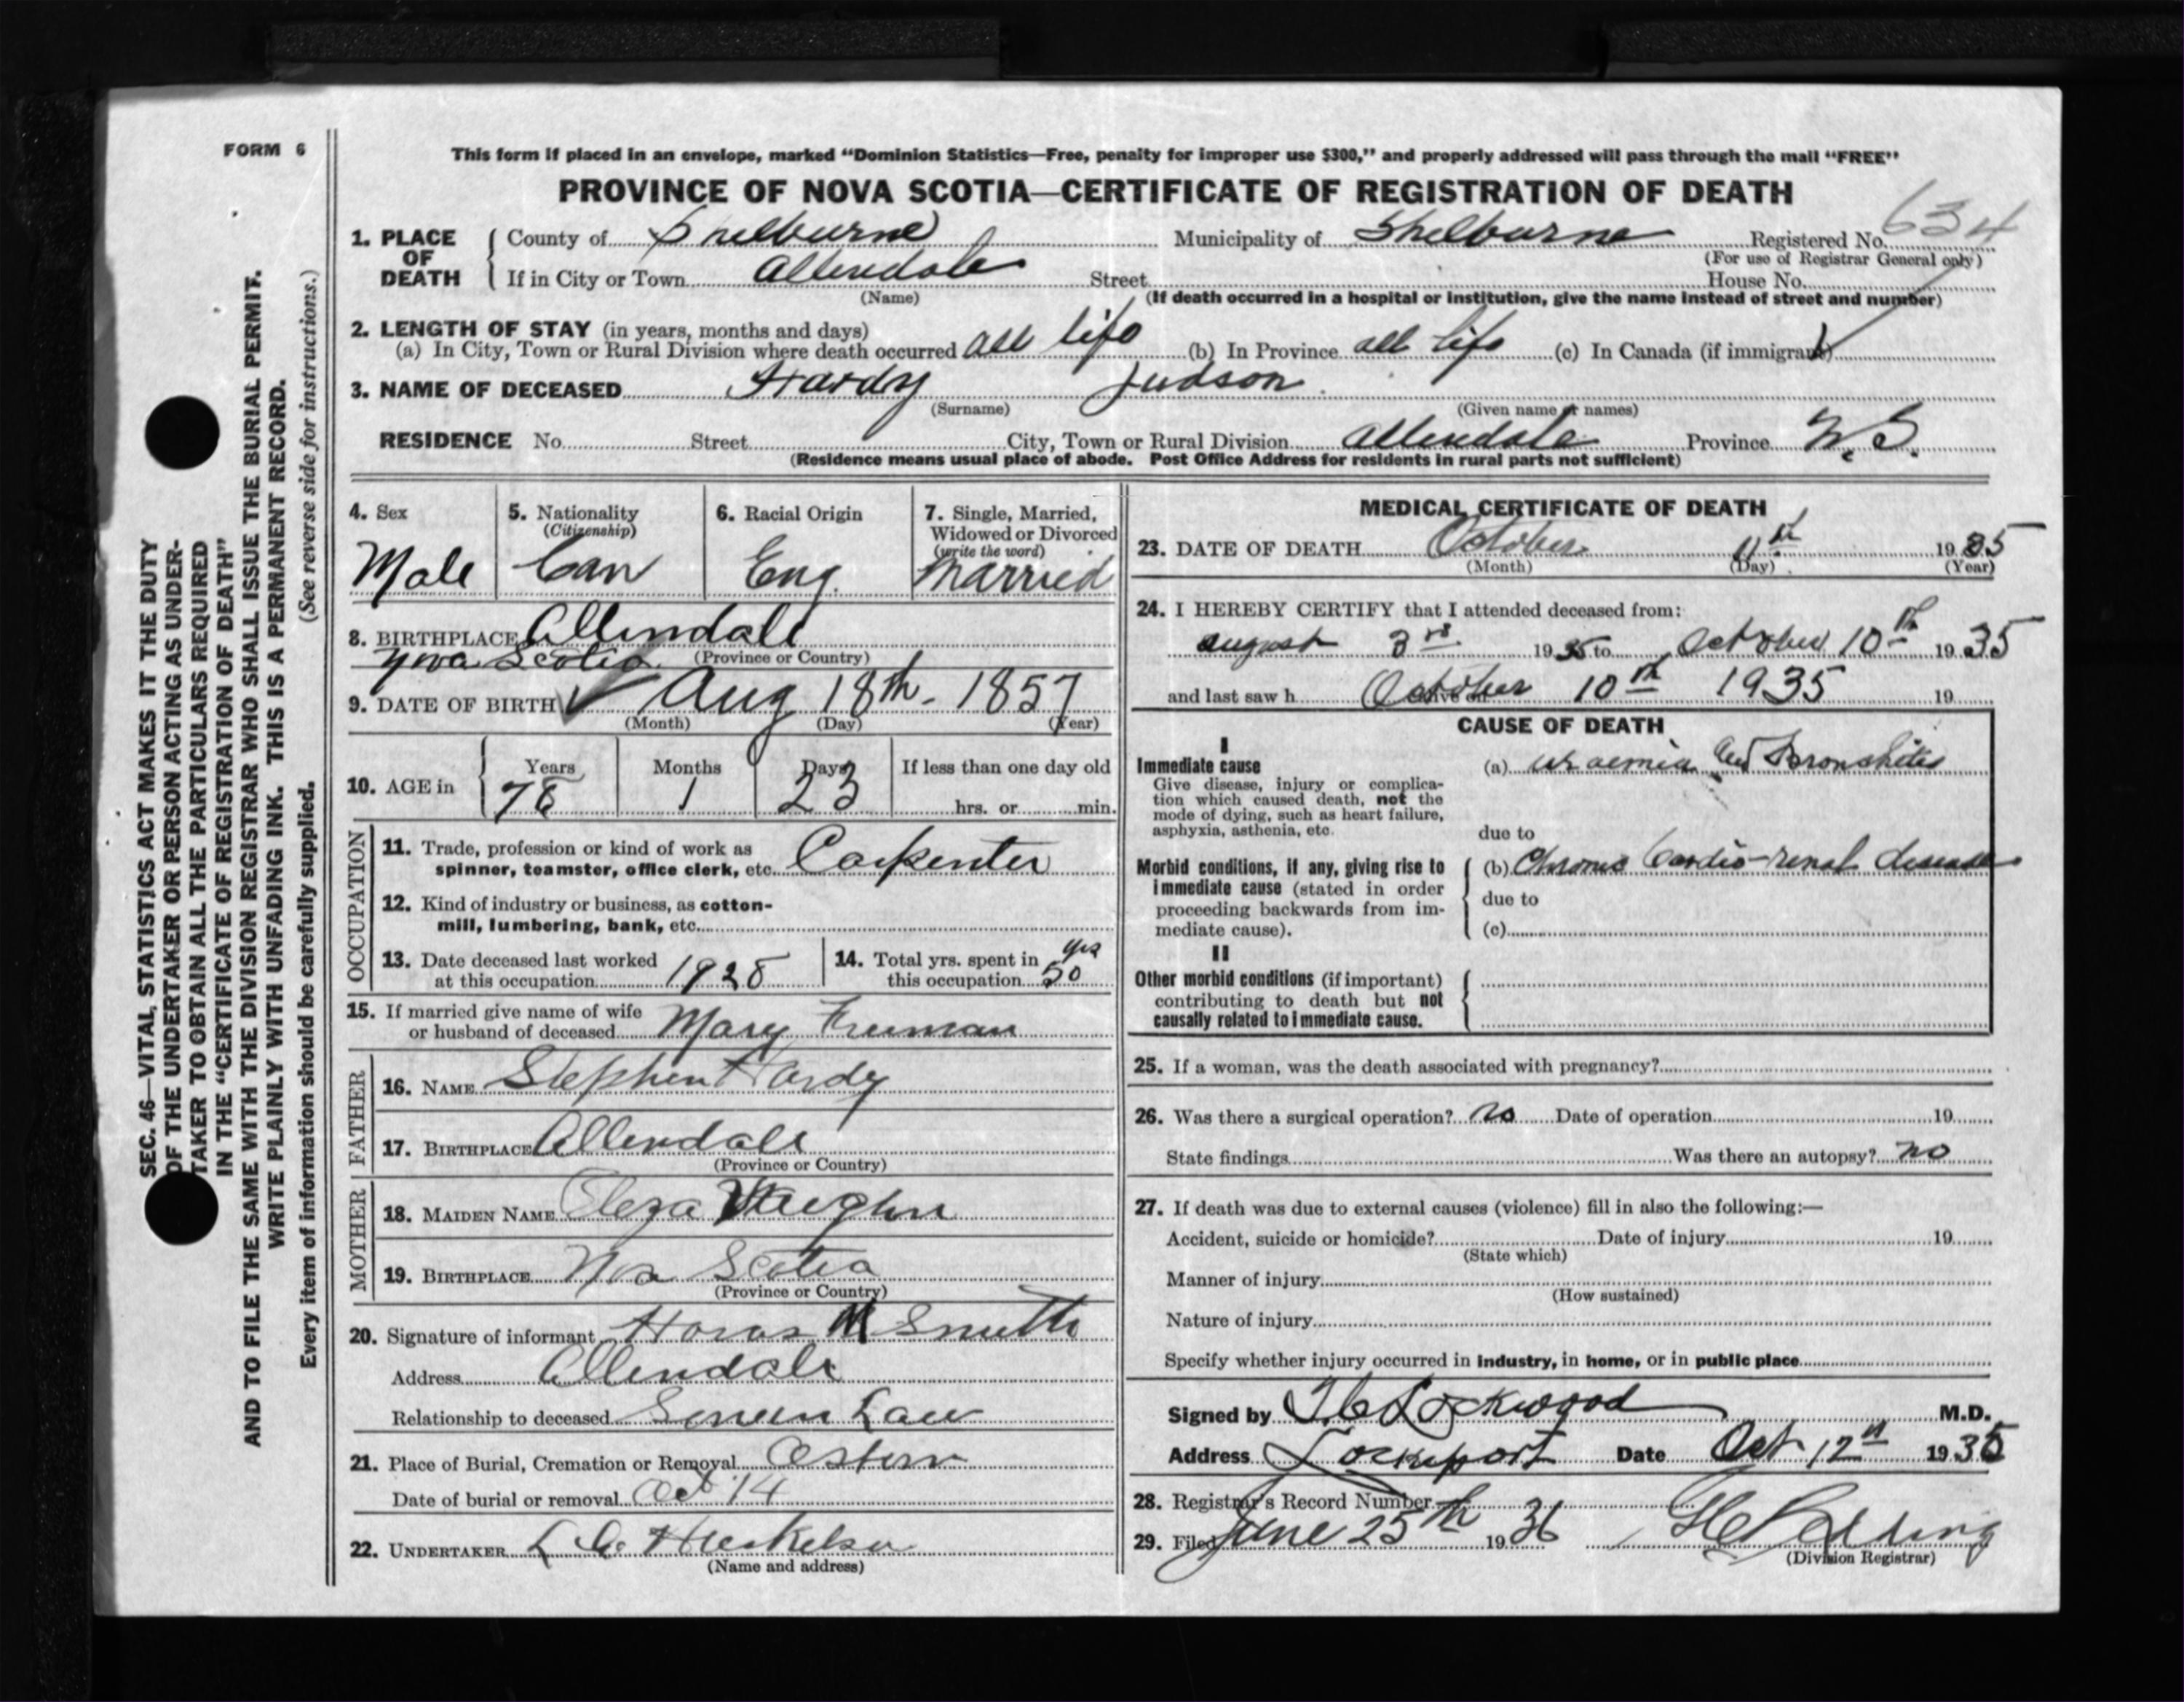 FORM 6
This form if placed in an envelope, marked "Dominion Statistics—Free, penalty for improper use $300," and properly addressed will pass through the mail "FREE"
PROVINCE OF NOVA SCOTIA—CERTIFICATE OF REGISTRATION OF DEATH
634
1. PLACE OF DEATH County of Shelburne Municipality of Shelburne Registered No.
(For use of Registrar General only)
If in City or Town Allendale Street House No.
(Name) (If death occurred in a hospital or institution, give the name instead of street and number)
2. LENGTH OF STAY (in years, months and days)
(a) In City, Town or Rural Division where death occurred all life (b) In Province all life (c) In Canada (if immigrant)
3. NAME OF DECEASED Hardy Judson
(Surname) (Given name or names)
RESIDENCE No. Street City, Town or Rural Division Allendale Province N.S.
(Residence means usual place of abode. Post Office Address for residents in rural parts not sufficient)
4. Sex Male
5. Nationality (Citizenship) Can
6. Racial Origin Eng.
7. Single, Married, Widowed or Divorced (write the word) Married
8. BIRTHPLACE Allendale
Nova Scotia (Province or Country)
9. DATE OF BIRTH Aug 18th - 1857
(Month) (Day) (Year)
10. AGE in Years 78 Months 1 Days 23 If less than one day old
hrs. or min.
OCCUPATION
11. Trade, profession or kind of work as
spinner, teamster, office clerk, etc. Carpenter
12. Kind of industry or business, as cotton-
mill, lumbering, bank, etc.
13. Date deceased last worked
at this occupation 1928
14. Total yrs. spent in
this occupation 50 yrs
15. If married give name of wife
or husband of deceased Mary Freeman
FATHER
16. NAME Stephen Hardy
17. BIRTHPLACE Allendale
(Province or Country)
MOTHER
18. MAIDEN NAME Eleza Vaughn
19. BIRTHPLACE Nova Scotia
(Province or Country)
20. Signature of informant M Smith
Address Allendale
Relationship to deceased Son in Law
21. Place of Burial, Cremation or Removal
Date of burial or removal Oct 14
22. UNDERTAKER L
(Name and address)
MEDICAL CERTIFICATE OF DEATH
23. DATE OF DEATH October 11th 1935
(Month) (Day) (Year)
24. I HEREBY CERTIFY that I attended deceased from:
August 3rd 1935 to October 10th 1935
and last saw h alive on October 10th 1935 19
CAUSE OF DEATH
I
Immediate cause
Give disease, injury or complica-
tion which caused death, not the
mode of dying, such as heart failure,
asphyxia, asthenia, etc.
(a) Uraemia and Bronchitis
due to
Morbid conditions, if any, giving rise to
immediate cause (stated in order
proceeding backwards from im-
mediate cause).
(b) Chronic Cardio-renal disease
due to
(c)
II
Other morbid conditions (if important)
contributing to death but not
causally related to immediate cause.
25. If a woman, was the death associated with pregnancy?
26. Was there a surgical operation? no Date of operation 19
State findings Was there an autopsy? no
27. If death was due to external causes (violence) fill in also the following:—
Accident, suicide or homicide? Date of injury 19
(State which)
Manner of injury
(How sustained)
Nature of injury
Specify whether injury occurred in industry, in home, or in public place
Signed by Lockwood M.D.
Address Lockeport Date Oct 12th 1935
28. Registrar's Record Number
29. Filed June 25th 1936
(Division Registrar)
SEC. 46—VITAL STATISTICS ACT MAKES IT THE DUTY
OF THE UNDERTAKER OR PERSON ACTING AS UNDER-
TAKER TO OBTAIN ALL THE PARTICULARS REQUIRED
IN THE "CERTIFICATE OF REGISTRATION OF DEATH"
AND TO FILE THE SAME WITH THE DIVISION REGISTRAR WHO SHALL ISSUE THE BURIAL PERMIT.
WRITE PLAINLY WITH UNFADING INK. THIS IS A PERMANENT RECORD.
Every item of information should be carefully supplied. (See reverse side for instructions.)